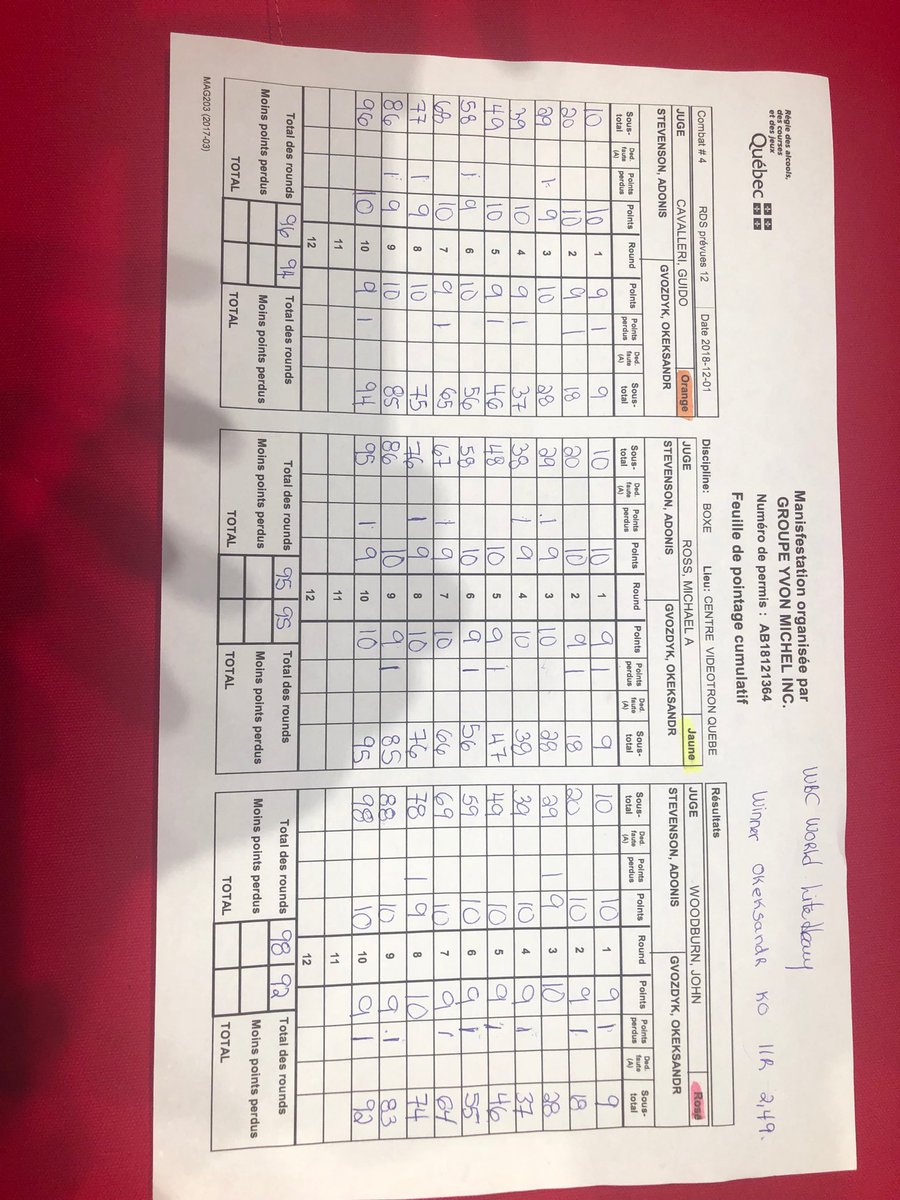 Régie des alcools,
des courses
et des jeux
Québec
Manisfestation organisée par
GROUPE YVON MICHEL INC.
Numéro de permis : AB18121364
Feuille de pointage cumulatif
WBC World Lite Heavy
Winner OKeKsandR KO 11R 2,49.
Combat # 4 RDS prévues 12 Date 2018-12-01
Discipline: BOXE Lieu: CENTRE VIDEOTRON QUEBE
Résultats
JUGE CAVALLERI, GUIDO Orange
STEVENSON, ADONIS GVOZDYK, OKEKSANDR
Sous-total Ded. faute (A) Points perdus Points Round Points Points perdus Ded. faute (A) Sous-total
10 10 1 9 1 9
20 10 2 9 1 18
29 1 9 3 10 28
39 10 4 9 1 37
49 10 5 9 1 46
58 1 9 6 10 56
68 10 7 9 1 65
77 1 9 8 10 75
86 1 9 9 10 85
96 10 10 9 1 94
11
12
Total des rounds 96 94 Total des rounds
Moins points perdus Moins points perdus
TOTAL TOTAL
MAG203 (2017-03)
JUGE ROSS, MICHAEL A Jaune
STEVENSON, ADONIS GVOZDYK, OKEKSANDR
Sous-total Ded. faute (A) Points perdus Points Round Points Points perdus Ded. faute (A) Sous-total
10 10 1 9 1 9
20 10 2 9 1 18
29 1 9 3 10 28
38 1 9 4 10 38
48 10 5 9 1 47
58 10 6 9 1 56
67 1 9 7 10 66
76 1 9 8 10 76
86 10 9 9 1 85
95 1 9 10 10 95
11
12
Total des rounds 95 95 Total des rounds
Moins points perdus Moins points perdus
TOTAL TOTAL
JUGE WOODBURN, JOHN Rose
STEVENSON, ADONIS GVOZDYK, OKEKSANDR
Sous-total Ded. faute (A) Points perdus Points Round Points Points perdus Ded. faute (A) Sous-total
10 10 1 9 1 9
20 10 2 9 1 18
29 1 9 3 10 28
39 10 4 9 1 37
49 10 5 9 1 46
59 10 6 9 1 55
69 10 7 9 1 64
78 1 9 8 10 74
88 10 9 9 1 83
98 10 10 9 1 92
11
12
Total des rounds 98 92 Total des rounds
Moins points perdus Moins points perdus
TOTAL TOTAL